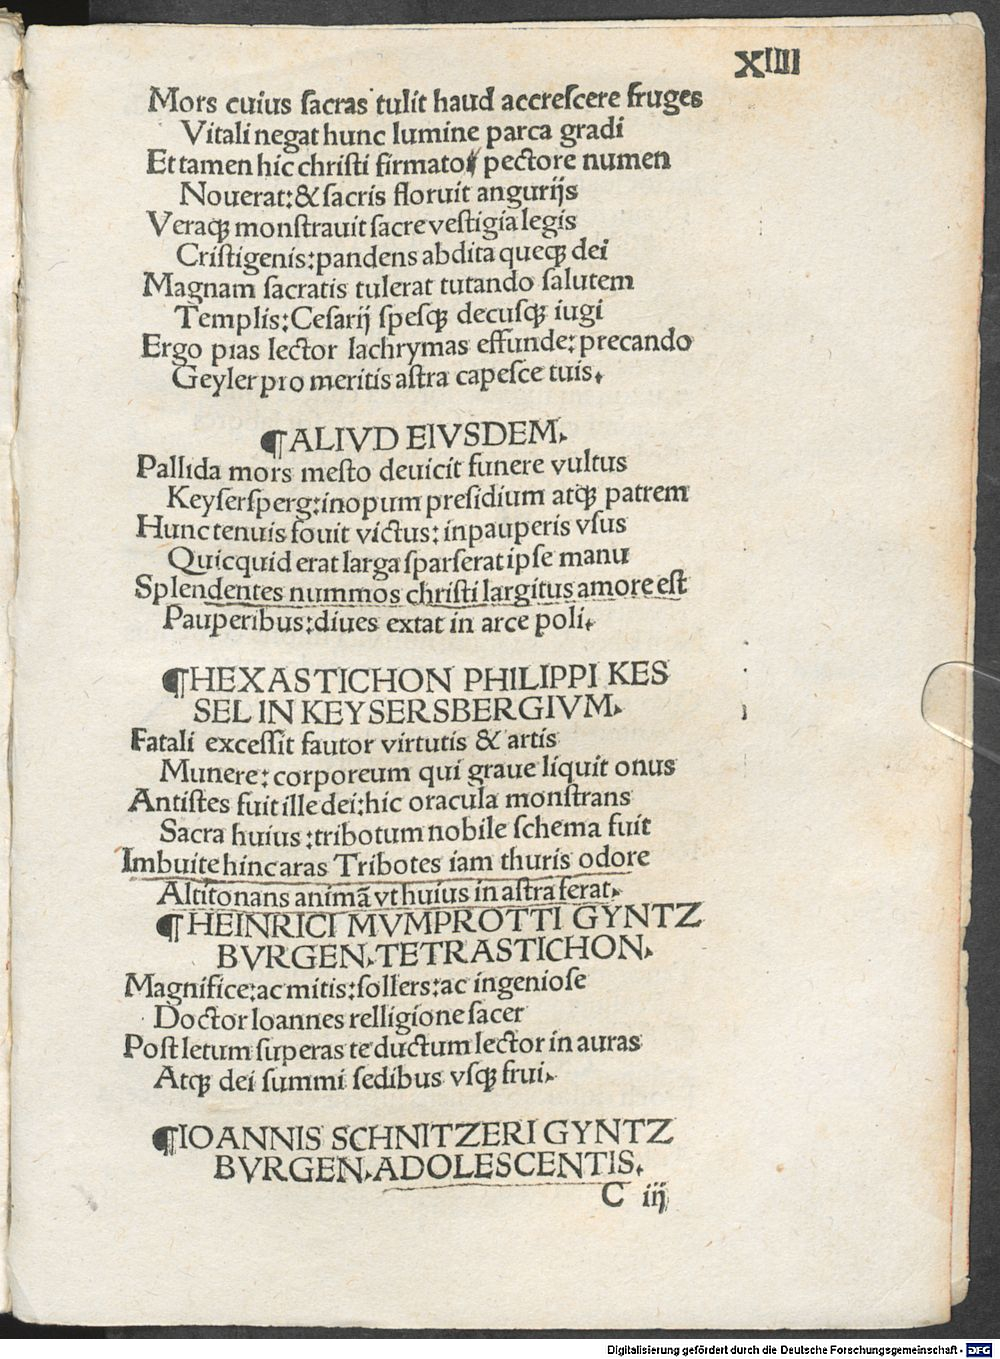 XIIII
Mors cuius sacras tulit haud accrescere fruges
Vitali negat hunc lumine parca gradi
Et tamen hic christi firmato pectore numen
Nouerat: & sacris floruit angurijs
Veraqꝫ monstrauit sacre vestigia legis
Cristigenis: pandens abdita queqꝫ dei
Magnam sacratis tulerat tutando salutem
Templis: Cesarij spesqꝫ decusqꝫ iugi
Ergo pias lector lachrymas effunde: precando
Geyler pro meritis astra capesce tuis.
¶ALIVD EIVSDEM.
Pallida mors mesto deuicit funere vultus
Keysersperg: inopum presidium atqꝫ patrem
Hunc tenuis fouit victus: in pauperis vsus
Quicquid erat larga sparserat ipse manu
Splendentes nummos christi largitus amore est
Pauperibus: diues extat in arce poli.
¶HEXASTICHON PHILIPPI KES
SEL IN KEYSERSBERGIVM.
Fatali excessit fautor virtutis & artis
Munere: corporeum qui graue liquit onus
Antistes fuit ille dei: hic oracula monstrans
Sacra huius: tribotum nobile schema fuit
Imbuite hinc aras Tribotes iam thuris odore
Altitonans animā vt huius in astra ferat.
¶HEINRICI MVMPROTTI GYNTZ
BVRGEN. TETRASTICHON.
Magnifice: ac mitis: sollers: ac ingeniose
Doctor Ioannes relligione sacer
Post letum superas te ductum lector in auras
Atqꝫ dei summi sedibus vsqꝫ frui.
¶IOANNIS SCHNITZERI GYNTZ
BVRGEN. ADOLESCENTIS.
C iij
Digitalisierung gefördert durch die Deutsche Forschungsgemeinschaft - DFG